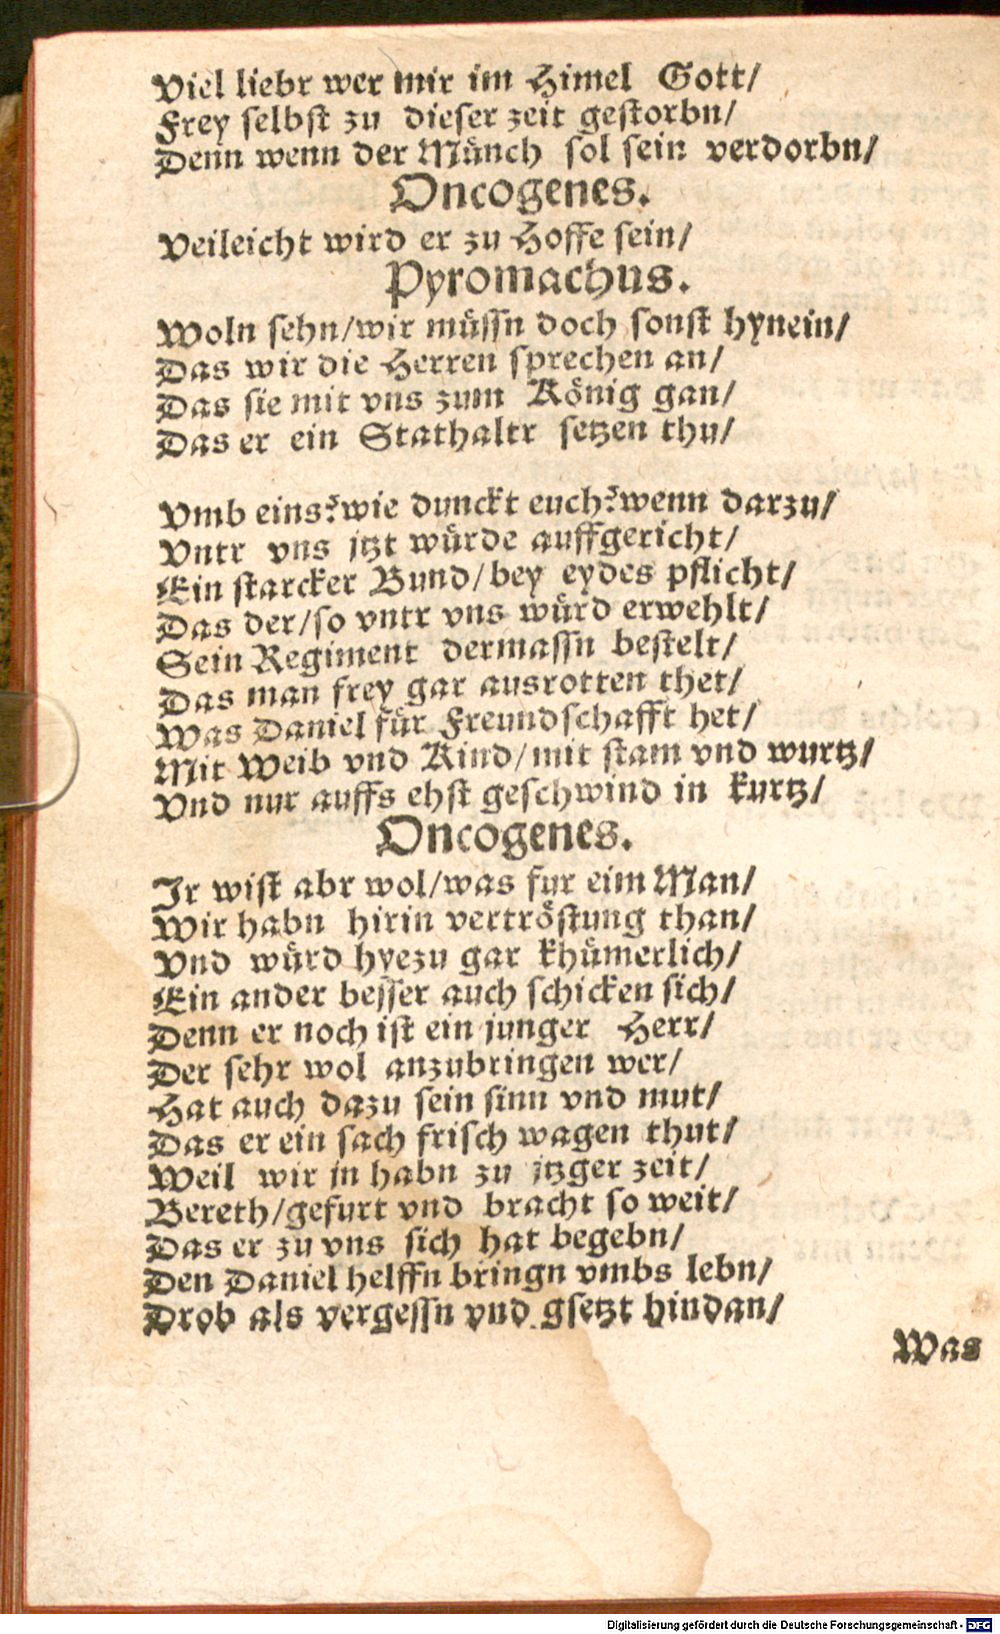 Viel liebr wer mir im Himel Gott/
Frey selbst zu dieser zeit gestorbn/
Denn wenn der Münch sol sein verdorbn/
Oncogenes.
Veileicht wird er zu Hoffe sein/
Pyromachus.
Woln sehn/wir müssn doch sonst hynein/
Das wir die Herren sprechen an/
Das sie mit vns zum König gan/
Das er ein Stathaltr setzen thu/
Vmb eins? wie dunckt euch? wenn darzu/
Vntr vns jtzt würde auffgericht/
Ein starcker Bund/bey eydes pflicht/
Das der/so vntr vns würd erwehlt/
Sein Regiment dermassn bestelt/
Das man frey gar ausrotten thet/
Was Daniel für Freundschafft het/
Mit Weib vnd Kind/mit stam vnd wurtz/
Vnd nur auffs ehst geschwind in kurtz/
Oncogenes.
Jr wist abr wol/was fur eim Man/
Wir habn hirin vertröstung than/
Vnd würd hyezu gar khümerlich/
Ein ander besser auch schicken sich/
Denn er noch ist ein junger Herr/
Der sehr wol anzubringen wer/
Hat auch dazu sein sinn vnd mut/
Das er ein sach frisch wagen thut/
Weil wir jn habn zu jtzger zeit/
Bereth/gefurt vnd bracht so weit/
Das er zu vns sich hat begebn/
Den Daniel helffn bringn vmbs lebn/
Drob als vergessn vnd gsetzt hindan/
Was
Digitalisierung gefördert durch die Deutsche Forschungsgemeinschaft - DFG